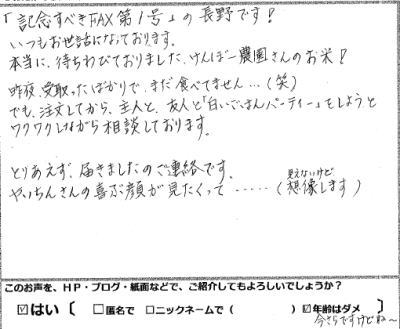 「記念すべきFAX第1号」の長野です!
いつもお世話になっております。
本当に、待ちわびておりました、けんぼー農園さんのお米!
昨夜、受取ったばかりで、まだ食べてません…(笑)
でも、注文してから、主人と、友人と「白いごはんパーティー」をしようと
ワクワクしながら相談しております。
とりあえず、届きましたのご連絡です。
やっちんさんの喜ぶ顔が見たくって……(想像します)
見えないけど
このお声を、HP・ブログ・紙面などで、ご紹介してもよろしいでしょうか?
☑はい 〔 □匿名で □ニックネームで( ) ☑年齢はダメ 〕
今さらですけどね〜